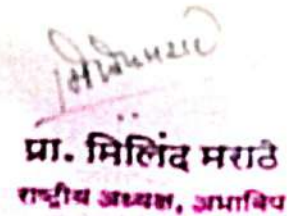 प्रा. मिलिंद मराठे
राष्ट्रीय अध्यक्ष, अभाविप